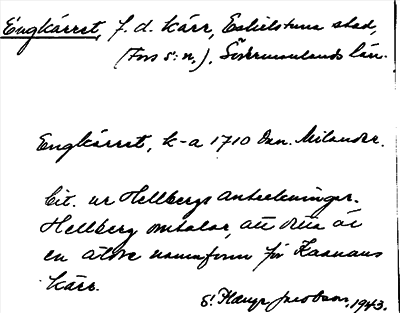 Engkärret, f.d. kärr, Eskilstuna stad,
(Fors s:n.), Södermanlands län.
Engkärret, k-a 1710 Dan. Milander.
Cit. ur Hellbergs anteckningar.
Hellberg omtalar, att detta är
en äldre namnform för Kaanans
kärr.
S. Hauge Jacobson, 1943.